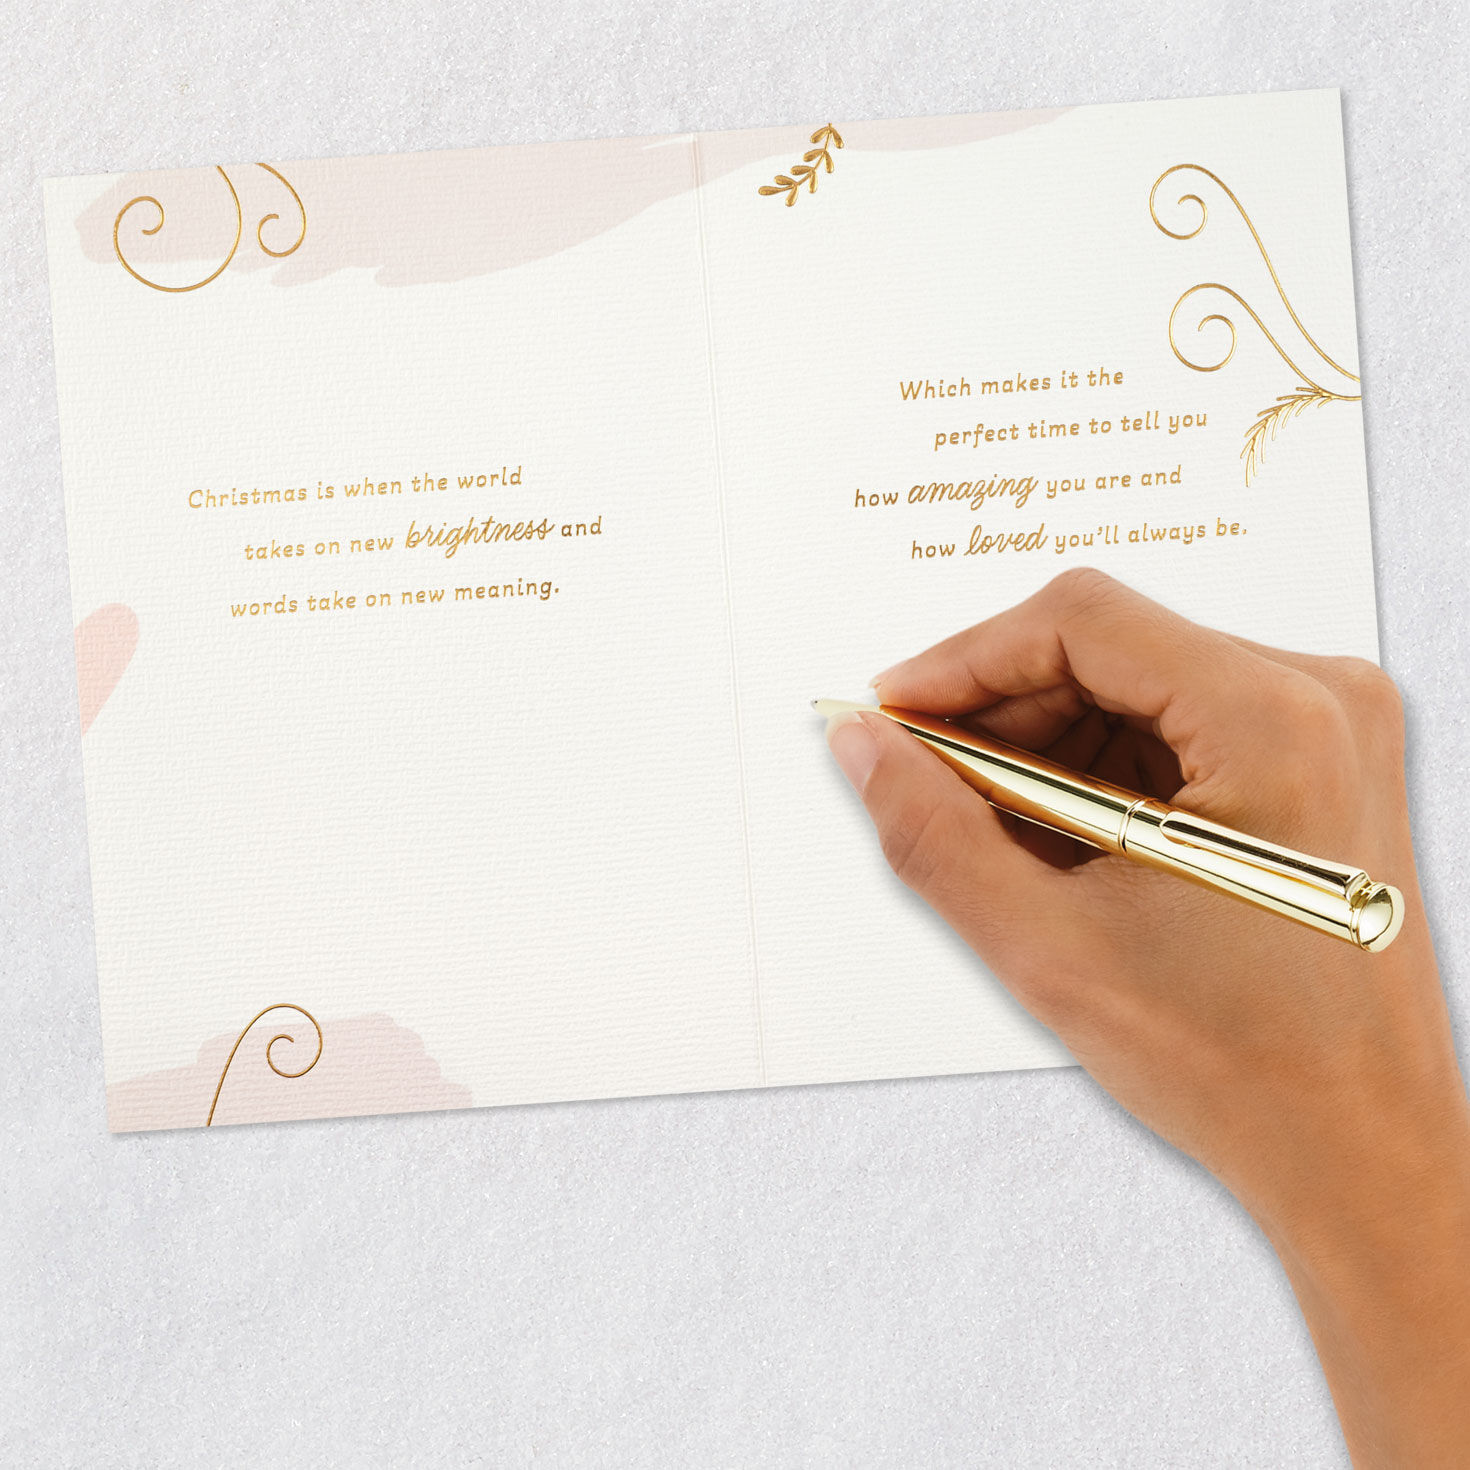 Christmas is when the world
takes on new brightness and
words take on new meaning.
Which makes it the
perfect time to tell you
how amazing you are and
how loved you'll always be.